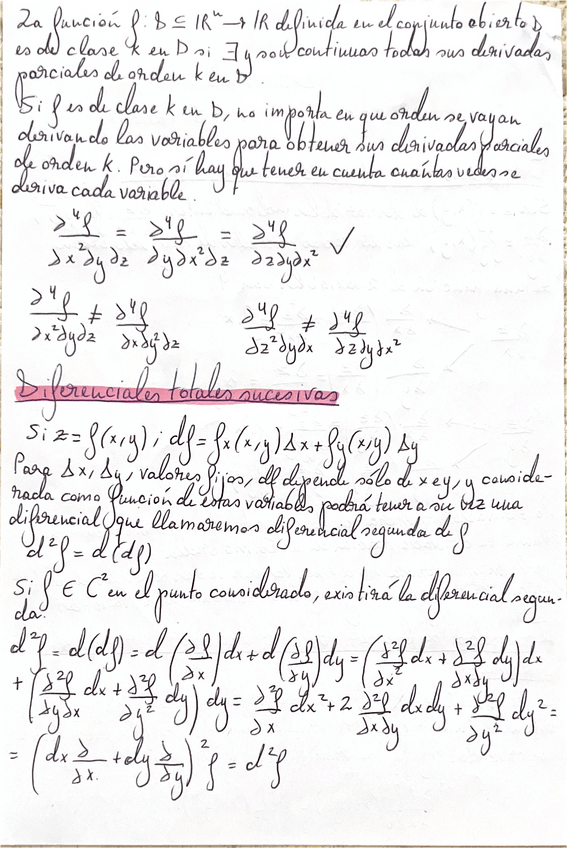 La función f: D ⊆ ℝⁿ → ℝ definida en el conjunto abierto D
es de clase k en D si ∃ y son continuas todas sus derivadas
parciales de orden k en D.
Si f es de clase k en D, no importa en que orden se vayan
derivando las variables para obtener sus derivadas parciales
de orden k. Pero sí hay que tener en cuenta cuántas veces se
deriva cada variable.
∂⁴f/∂x²∂y∂z = ∂⁴f/∂y∂x²∂z = ∂⁴f/∂z∂y∂x² ✓
∂⁴f/∂x²∂y∂z ≠ ∂⁴f/∂x∂y²∂z ∂⁴f/∂z²∂y∂x ≠ ∂⁴f/∂z∂y∂x²
Diferenciales totales sucesivas
Si z = f(x,y); df = fx(x,y) Δx + fy(x,y) Δy
Para Δx, Δy, valores fijos, df depende sólo de x e y, y conside-
rada como función de estas variables podrá tener a su vez una
diferencial que llamaremos diferencial segunda de f
d²f = d(df)
Si f ∈ C² en el punto considerado, existirá la diferencial segun-
da.
d²f = d(df) = d(∂f/∂x)dx + d(∂f/∂y)dy = (∂²f/∂x² dx + ∂²f/∂x∂y dy)dx
+ (∂²f/∂y∂x dx + ∂²f/∂y² dy) dy = ∂²f/∂x dx² + 2 ∂²f/∂x∂y dxdy + ∂²f/∂y² dy² =
= (dx ∂/∂x + dy ∂/∂y)² f = d²f